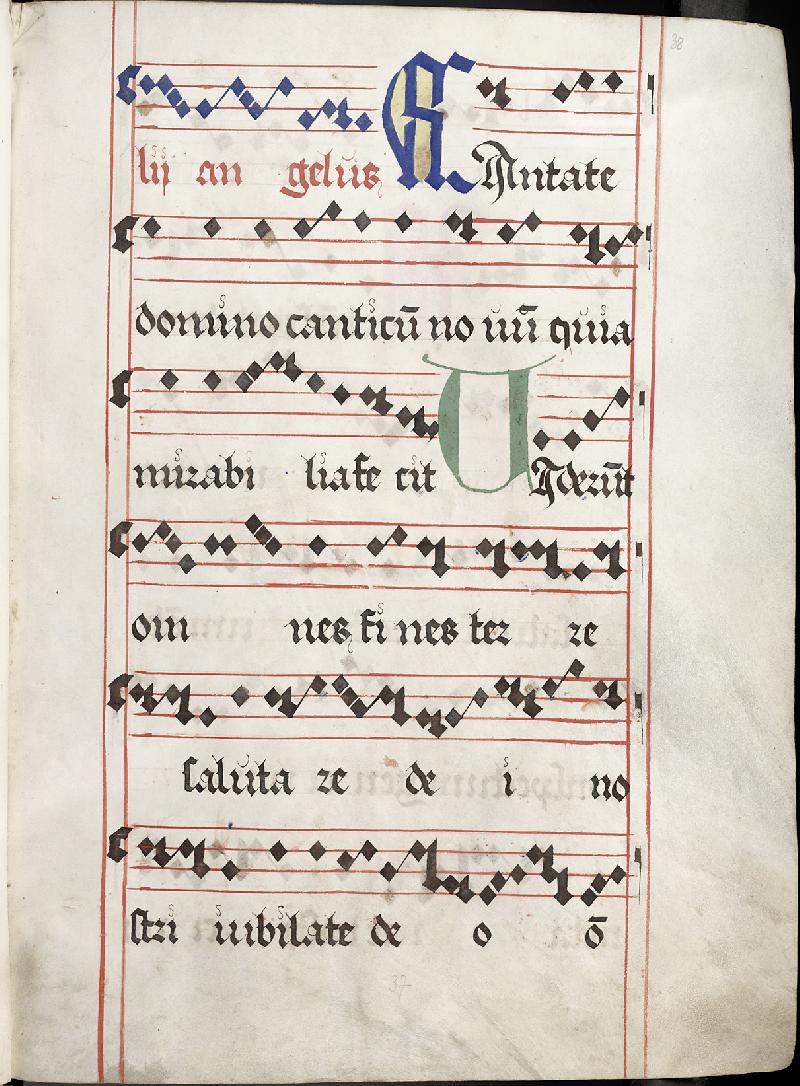 38
lij an gelus Cantate
domino canticū no uū quia
mirabi lia fe cit Viderūt
om nes fi nes ter re
saluta re de i no
stri iubilate de o ō
37